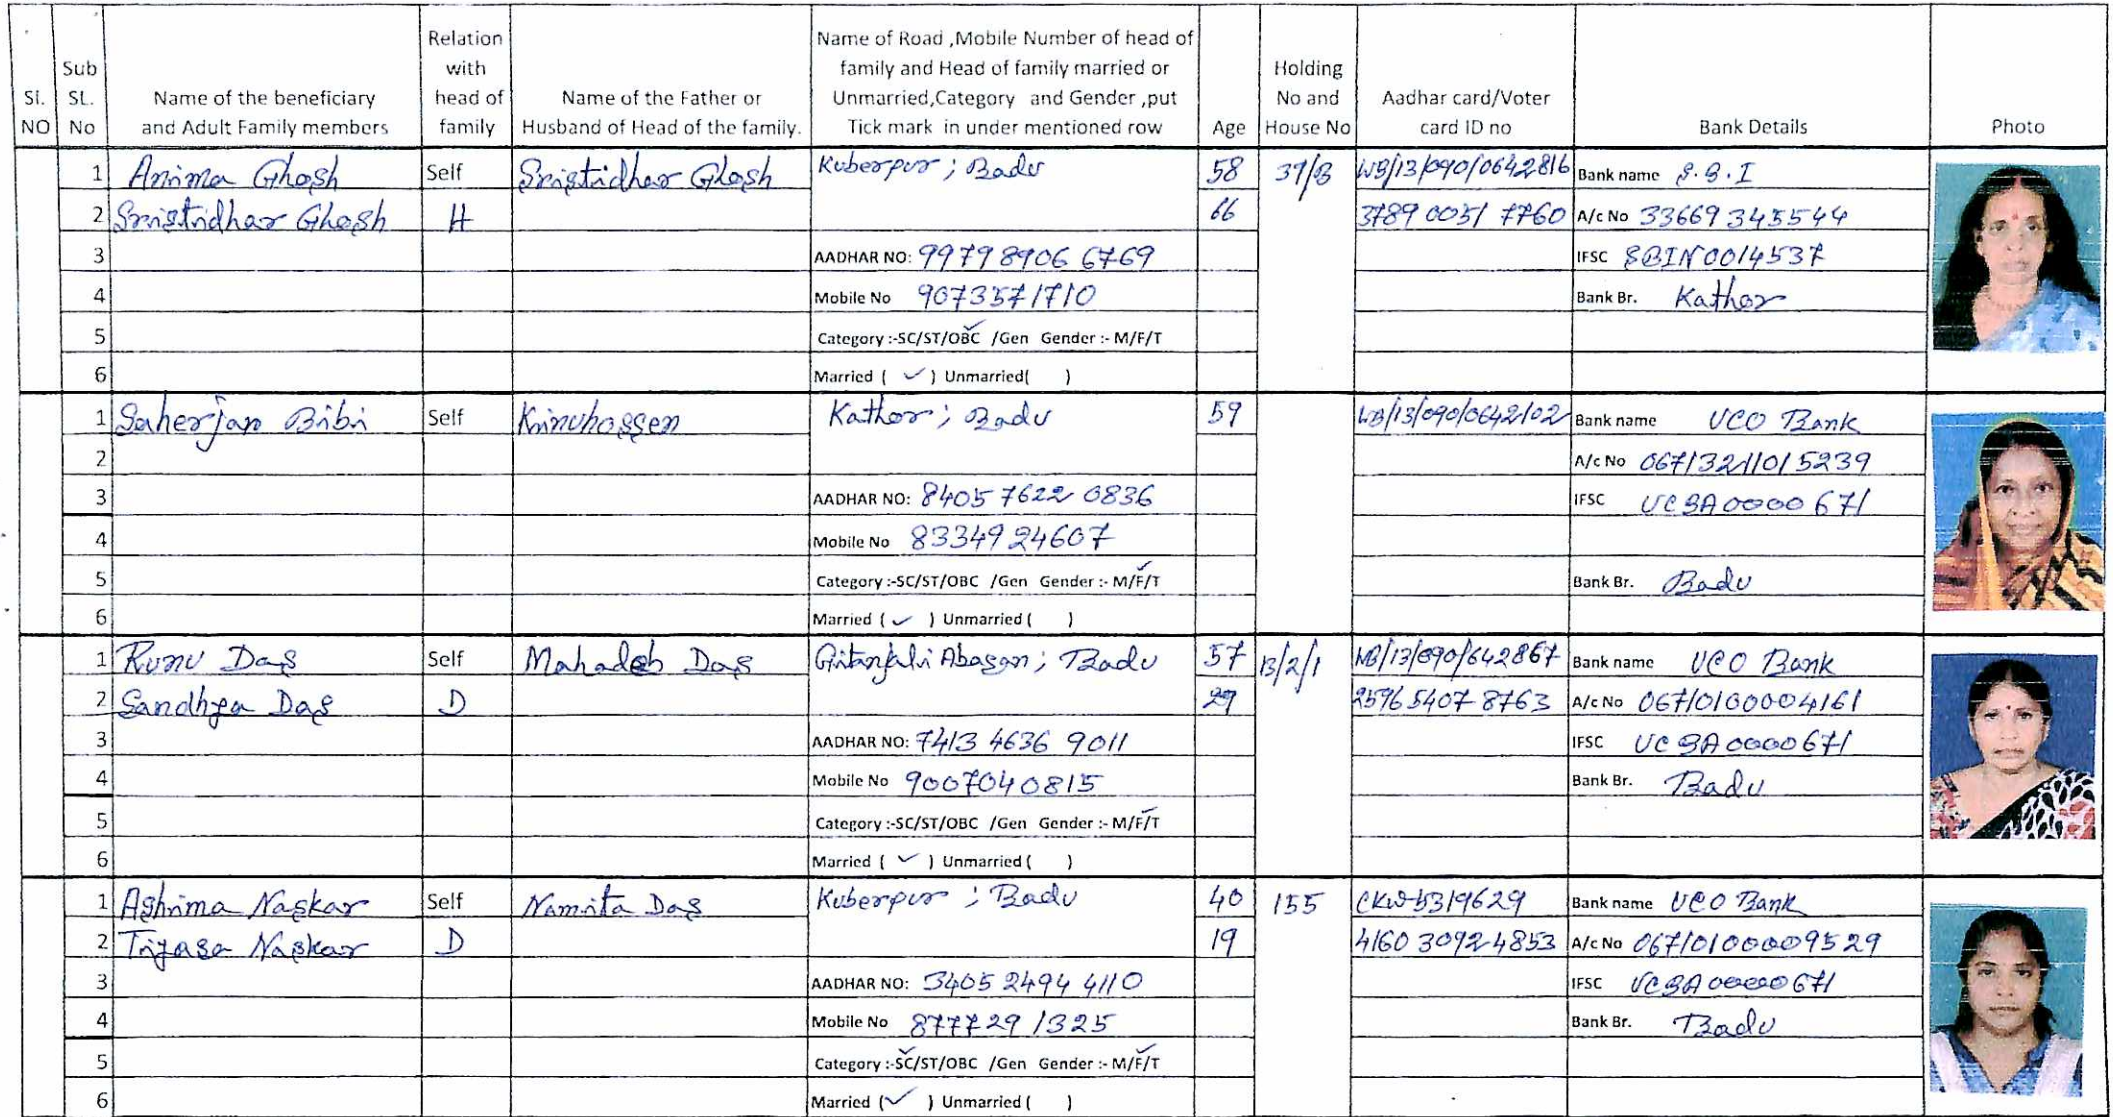 Si. NO
Sub SL. No
Name of the beneficiary and Adult Family members
Relation with head of family
Name of the Father or Husband of Head of the family.
Name of Road ,Mobile Number of head of family and Head of family married or Unmarried,Category and Gender ,put Tick mark in under mentioned row
Age
Holding No and House No
Aadhar card/Voter card ID no
Bank Details
Photo
1 Anima Ghosh Self Sristridhar Ghosh Kuberpur ; Badu 58 37/B WB/13/090/0642816 Bank name S.B.I
2 Sristridhar Ghosh H 66 3789 0051 7760 A/c No 33669345544
3 AADHAR NO: 9979 8906 6769 IFSC SBIN0014537
4 Mobile No 9073571710 Bank Br. Kathor
5 Category :-SC/ST/OBC ✓ /Gen Gender :- M/F/T
6 Married ( ✓ ) Unmarried( )
1 Saherjan Bibi Self Kinuhossen Kathor ; Badu 59 WB/13/090/0642102 Bank name UCO Bank
2 A/c No 06713211015239
3 AADHAR NO: 8405 7622 0836 IFSC UCBA0000671
4 Mobile No 8334924607
5 Category :-SC/ST/OBC /Gen Gender :- M/F ✓/T Bank Br. Badu
6 Married ( ✓ ) Unmarried ( )
1 Runu Das Self Mahadeb Das Gitanjali Abasan ; Badu 57 13/2/1 WB/13/090/642867 Bank name UCO Bank
2 Sandhya Das D 29 2596 5407 8763 A/c No 06710100004161
3 AADHAR NO: 7413 4636 9011 IFSC UCBA0000671
4 Mobile No 9007040815 Bank Br. Badu
5 Category :-SC/ST/OBC /Gen Gender :- M/F ✓/T
6 Married ( ✓ ) Unmarried ( )
1 Ashima Naskar Self Namita Das Kuberpur ; Badu 40 155 CKW5319629 Bank name UCO Bank
2 Tiyasa Naskar D 19 4160 3092 4853 A/c No 06710100009529
3 AADHAR NO: 3405 2494 4110 IFSC UCBA0000671
4 Mobile No 8777291325 Bank Br. Badu
5 Category :-SC ✓/ST/OBC /Gen Gender :- M/F ✓/T
6 Married ( ✓ ) Unmarried ( )